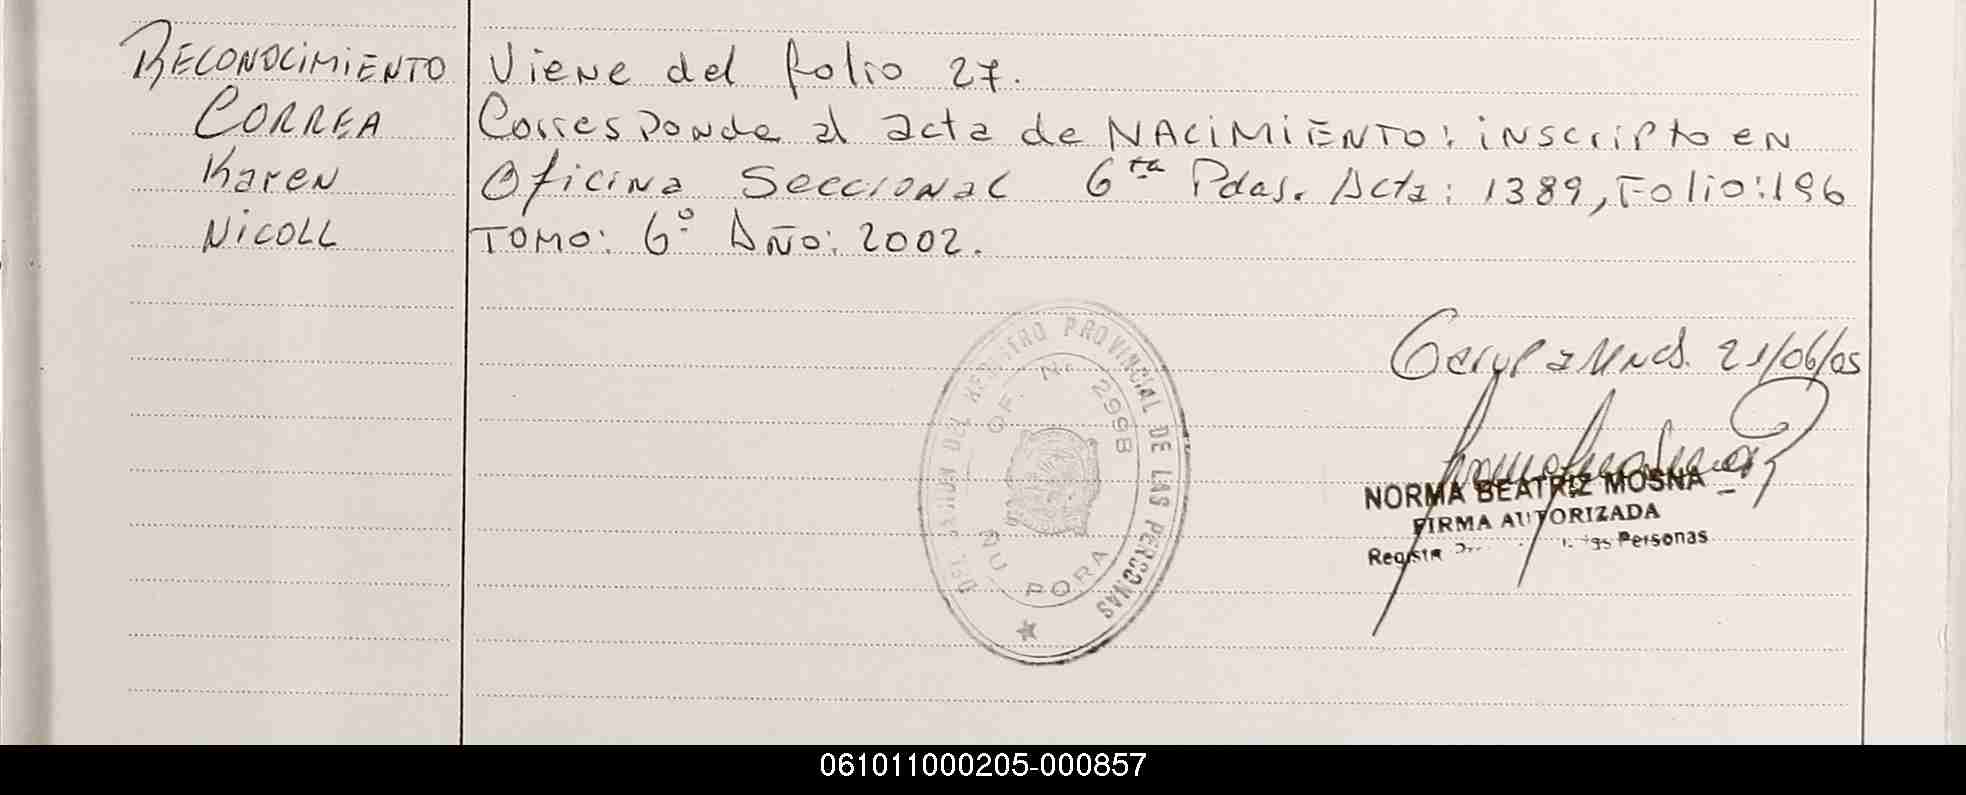 RECONOCIMIENTO
CORREA
Karen
Nicoll
Viene del folio 27.
Corresponde al acta de NACIMIENTO: inscripto en
Oficina Seccional 6ta Pdas. Acta: 1389, Folio: 196
TOMO: 6º Año: 2002.
Garupa Mnes. 21/06/05
DEL REGISTRO PROVINCIAL DE LAS PERSONAS
OF. Nº 2998
ÑU PORA
NORMA BEATRIZ MOSNA
FIRMA AUTORIZADA
Personas
061011000205-000857